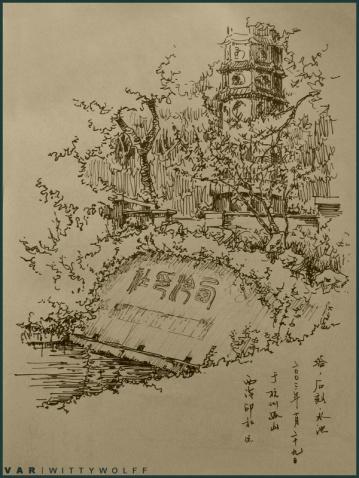 西泠印社
塔、石刻、水池
二〇〇二年 月二十九日
于杭州孤山
西泠印社
VAR | WITTYWOLFF